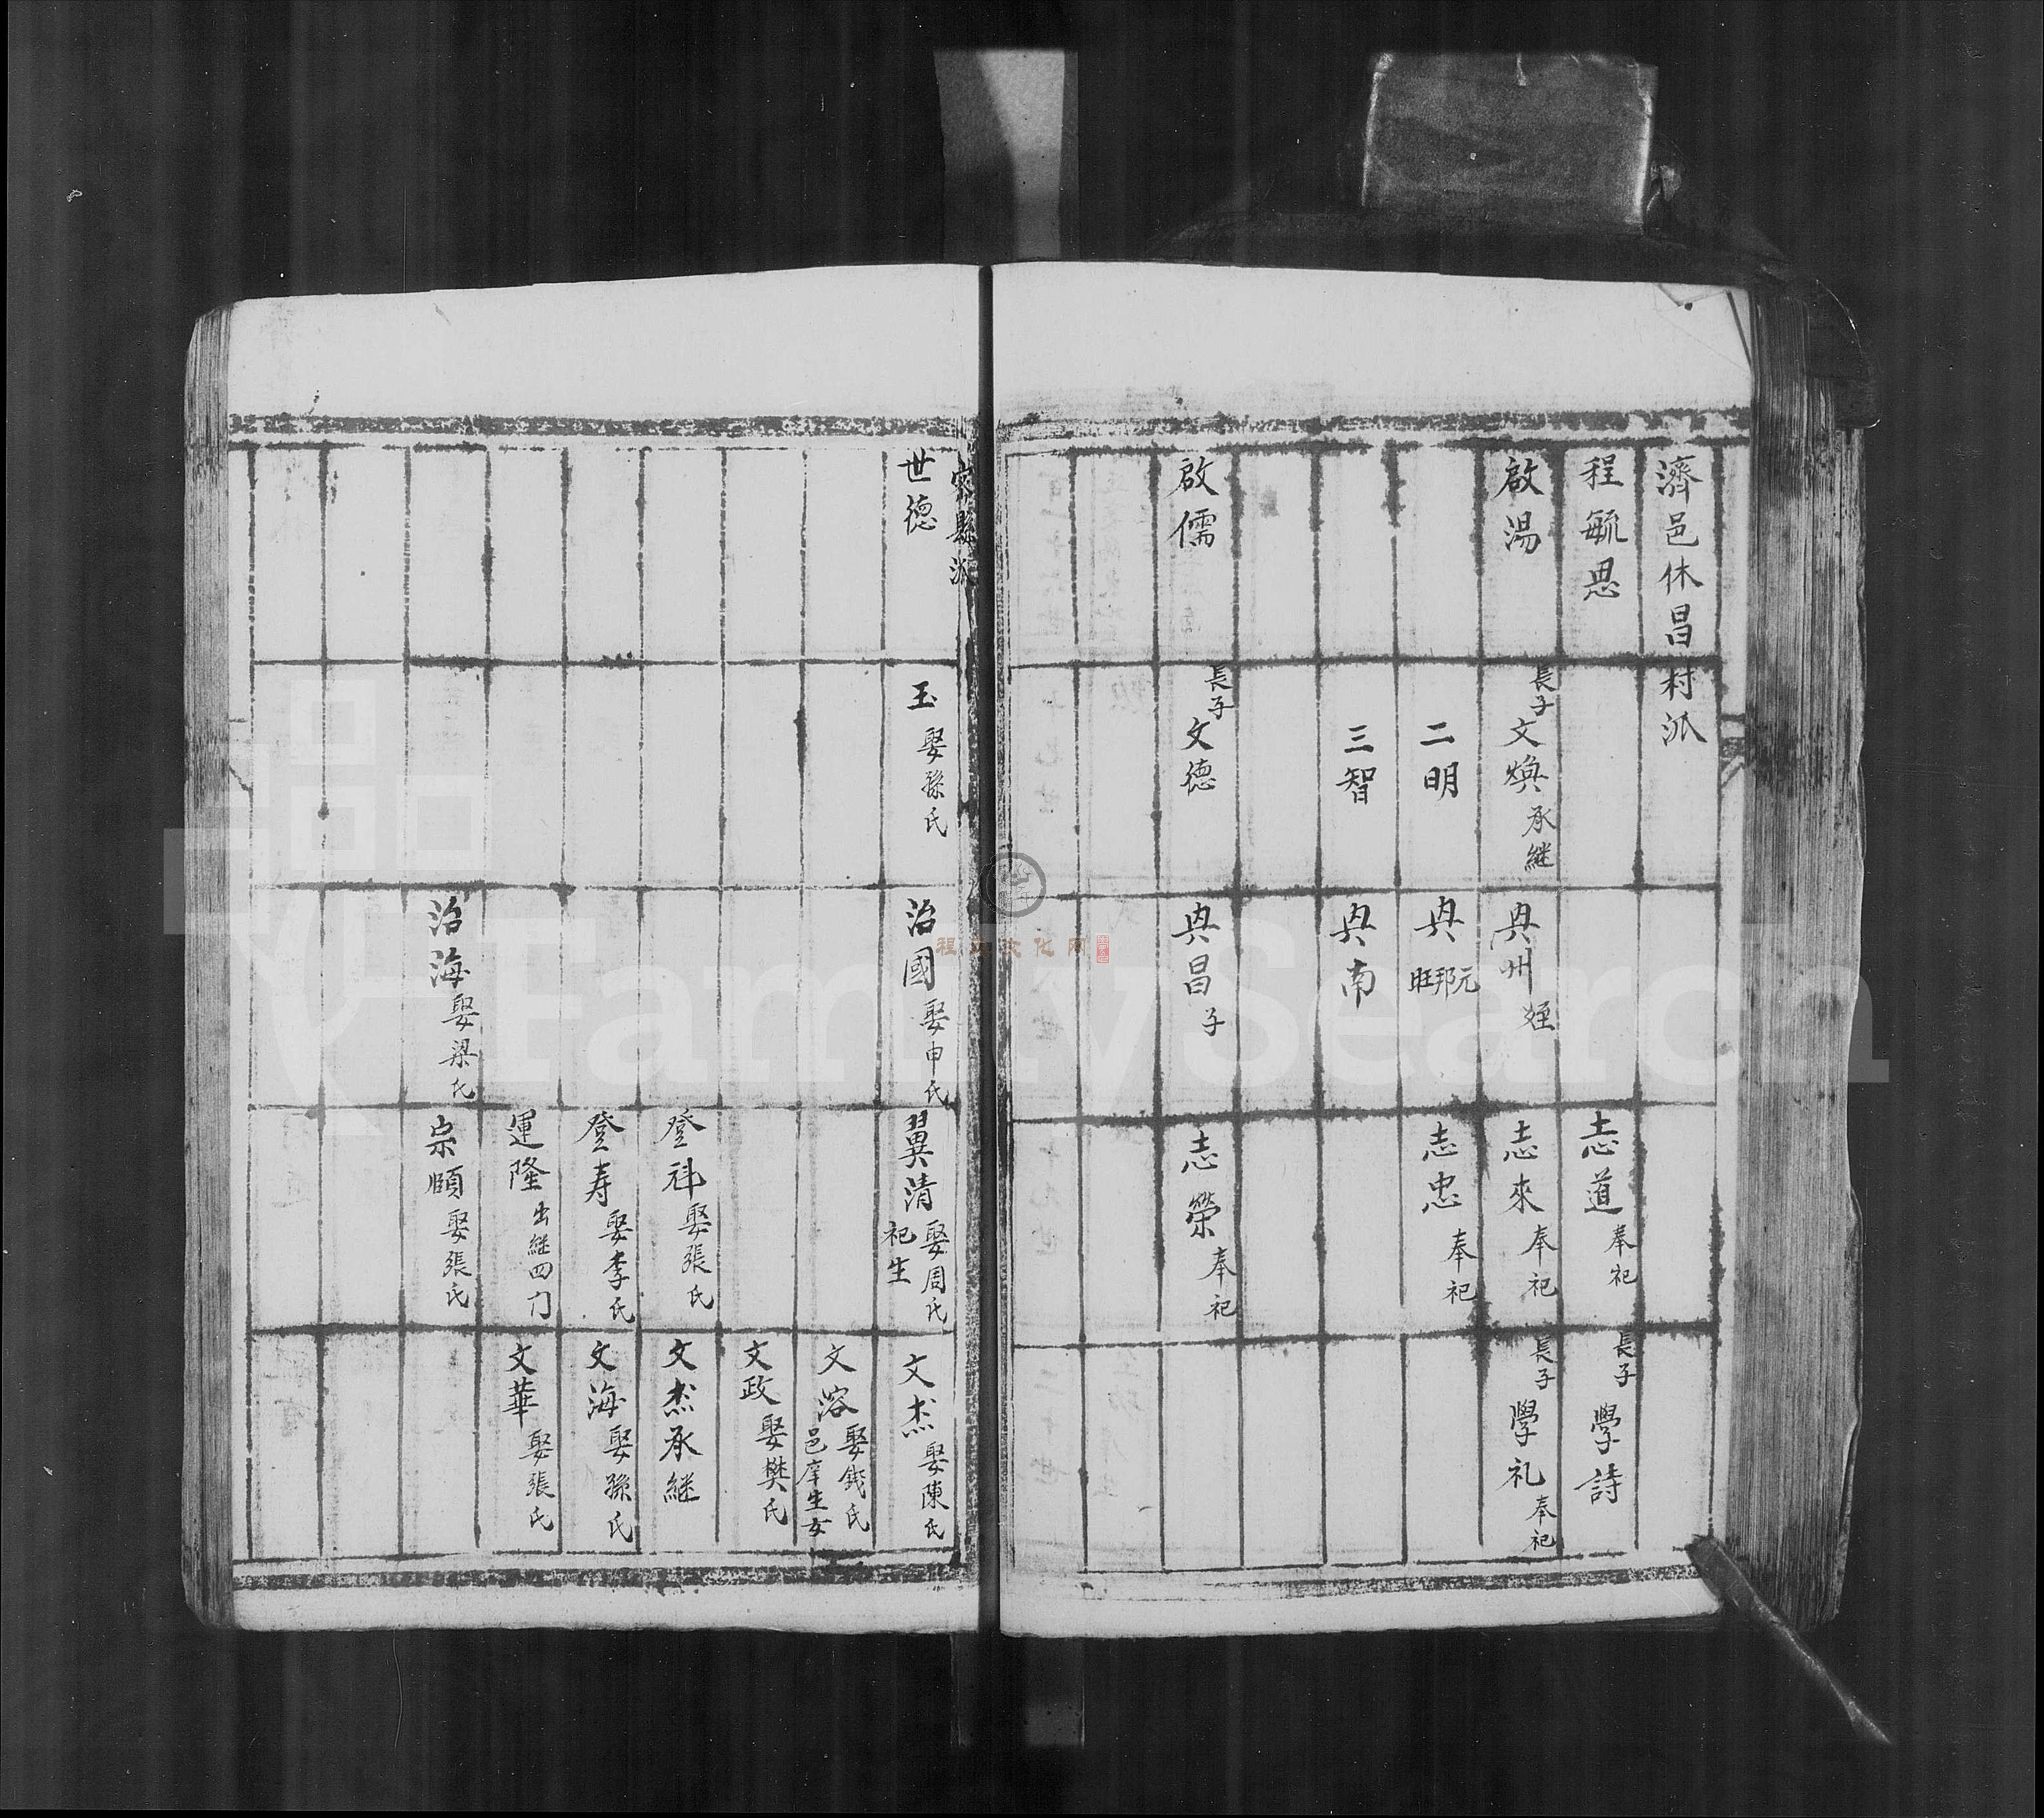 濟邑休昌村派
程毓思
志道奉祀
長子學詩
啟湯
長子文煥承継
典州姪
志來奉祀
長子學礼奉祀
二明
典旺邦元
志忠奉祀
三智
典南
啟儒
長子文德
典昌子
志榮奉祀
縣派
世德
玉娶孫氏
治國娶申氏
翼清娶周氏
祀生
文杰娶陳氏
文溶娶錢氏
邑庠生女
文政娶樊氏
登科娶張氏
文杰承継
登寿娶李氏
文海娶孫氏
運隆出継四门
文華娶張氏
治海娶梁氏
宗頤娶張氏
程氏文化网
FamilySearch